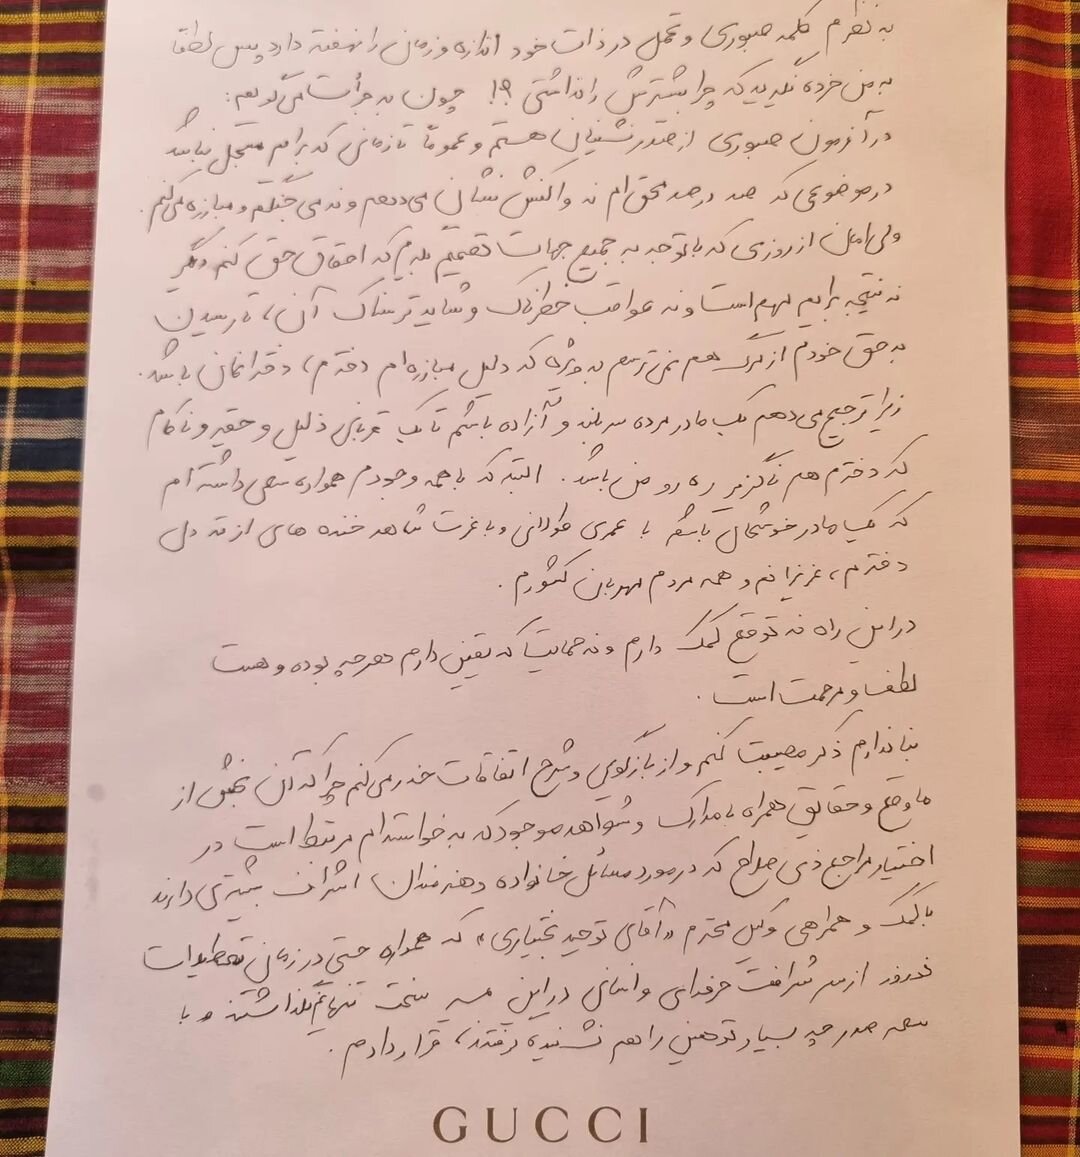 به نظرم کلمه صبوری و تحمل در ذات خود اندازه و زمان را نهفته دارد پس لطفا
به من خرده نگیرید که چرا بیشترش را نداشتی ؟! چون به جرأت می‌گویم:
در آزمون صبوری از صدرنشینان هستم و عموماً تا زمانی که برایم مسجل نباشد
در موضوعی که صد در صد محق‌ام نه واکنش نشان می‌دهم و نه می‌جنگم و مبارزه می‌کنم.
ولی امان از روزی که با توجه به جمیع جهات تصمیم بگیرم که احقاق حق کنم دیگر
نه نتیجه برایم مهم است و نه عواقب خطرناک و شاید ترسناک آن، تا رسیدن
به حق خودم از مرگ هم نمی‌ترسم به ویژه که دلیل مبارزه‌ام دخترم، دخترانمان باشد.
زیرا ترجیح می‌دهم یک مادر مرده سربلند و آزاده باشم تا یک قربانی ذلیل و حقیر و ناکام
که دخترم هم ناگزیر ره رو من باشد. البته که با همه وجودم همواره سعی داشته‌ام
که یک مادر خوشحال باشم با عمری طولانی و با عزت شاهد خنده های از ته دل
دخترم، عزیزانم و همه مردم مهربان کشورم.
در این راه نه توقع کمک دارم و نه حمایت که یقین دارم هر چه بوده و هست
لطف و مرحمت است.
بنا ندارم ذکر مصیبت کنم و از بازگویی و شرح اتفاقات حذر می‌کنم چرا که آن بخش از
ماوقع و حقایق همراه با مدارک و شواهد موجود که به خواسته‌ام مرتبط است در
اختیار مراجع ذی صلاح که در مورد مسائل خانواده و هنرمندان اشراف بیشتری دارند
با کمک و همراهی وکیل محترم «آقای توحید بختیاری» که همواره حتی در زمان تعطیلات
نوروز از سر شرافت حرفه‌ای و انسانی در این مسیر سخت تنهایم نگذاشتند و با
سعه صدر چه بسیار توهین را هم نشنیده گرفتند، قرار دادم.
GUCCI